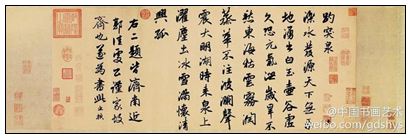 趵突泉
濼水發源天下無平
地湧出白玉壺谷虛
久恐元氣洩歲旱不
愁東海枯雲霧潤
蒸華不注波瀾聲
震大明湖時來泉上
濯塵土冰雪滿懷清
興孤
右二題皆濟南近
郭佳處公謹家故
齊也遂為書此孟頫
@中国书画艺术
weibo.com/gdshys